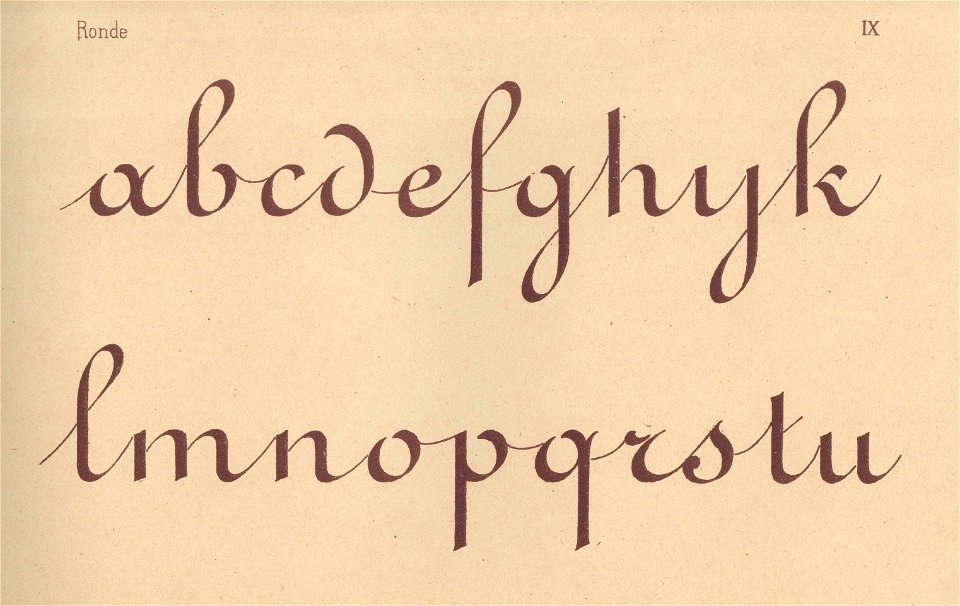 Ronde IX
abcdefghijk
lmnopqrstu